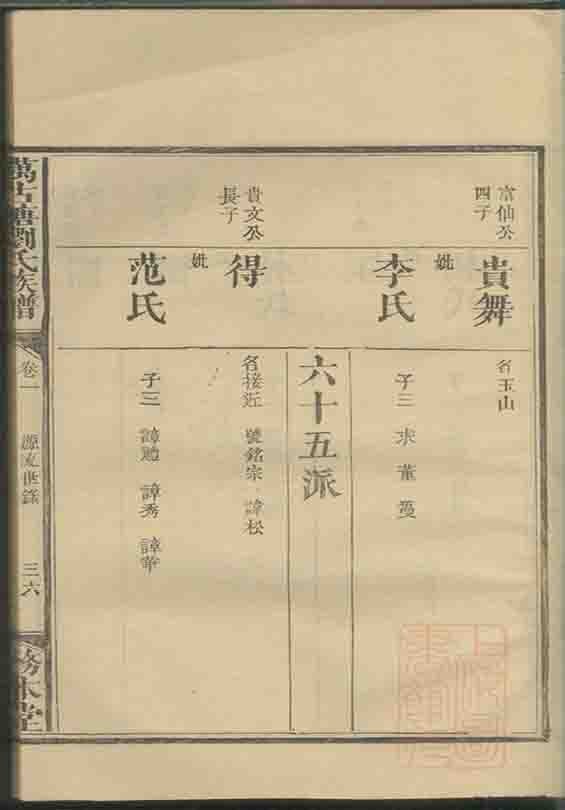 富仙公
四子
貴舞
名玉山
妣
李氏
子三 求 董 蔓
六十五派
貴文公
長子
得
名接近 號銘宗 諱松
妣
范氏
子三 諱勉 諱秀 諱華
萬古塘劉氏族譜
卷一
源流世錄
三六
務本堂